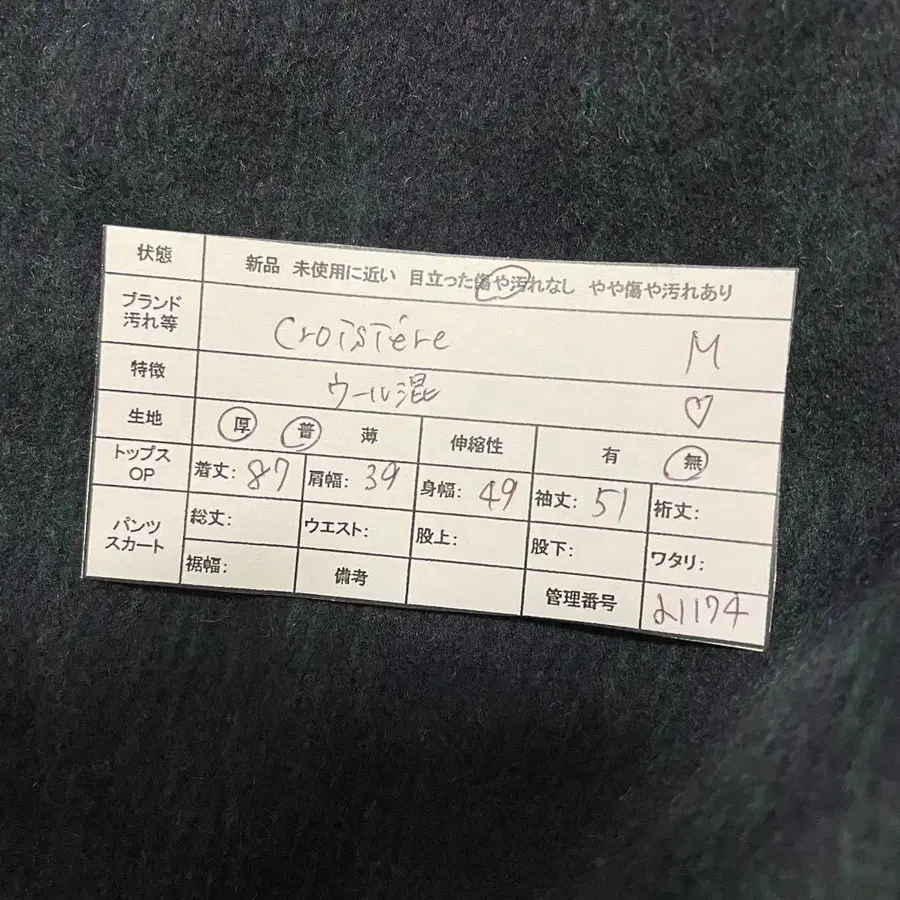 状態 新品 未使用に近い 目立った傷や汚れなし やや傷や汚れあり
ブランド 汚れ等 Croisière M
特徴 ウール混 ♡
生地 厚 普 薄 伸縮性 有 無
トップス OP 着丈: 87 肩幅: 39 身幅: 49 袖丈: 51 裄丈:
パンツ スカート 総丈: ウエスト: 股上: 股下: ワタリ:
裾幅: 備考 管理番号 21174